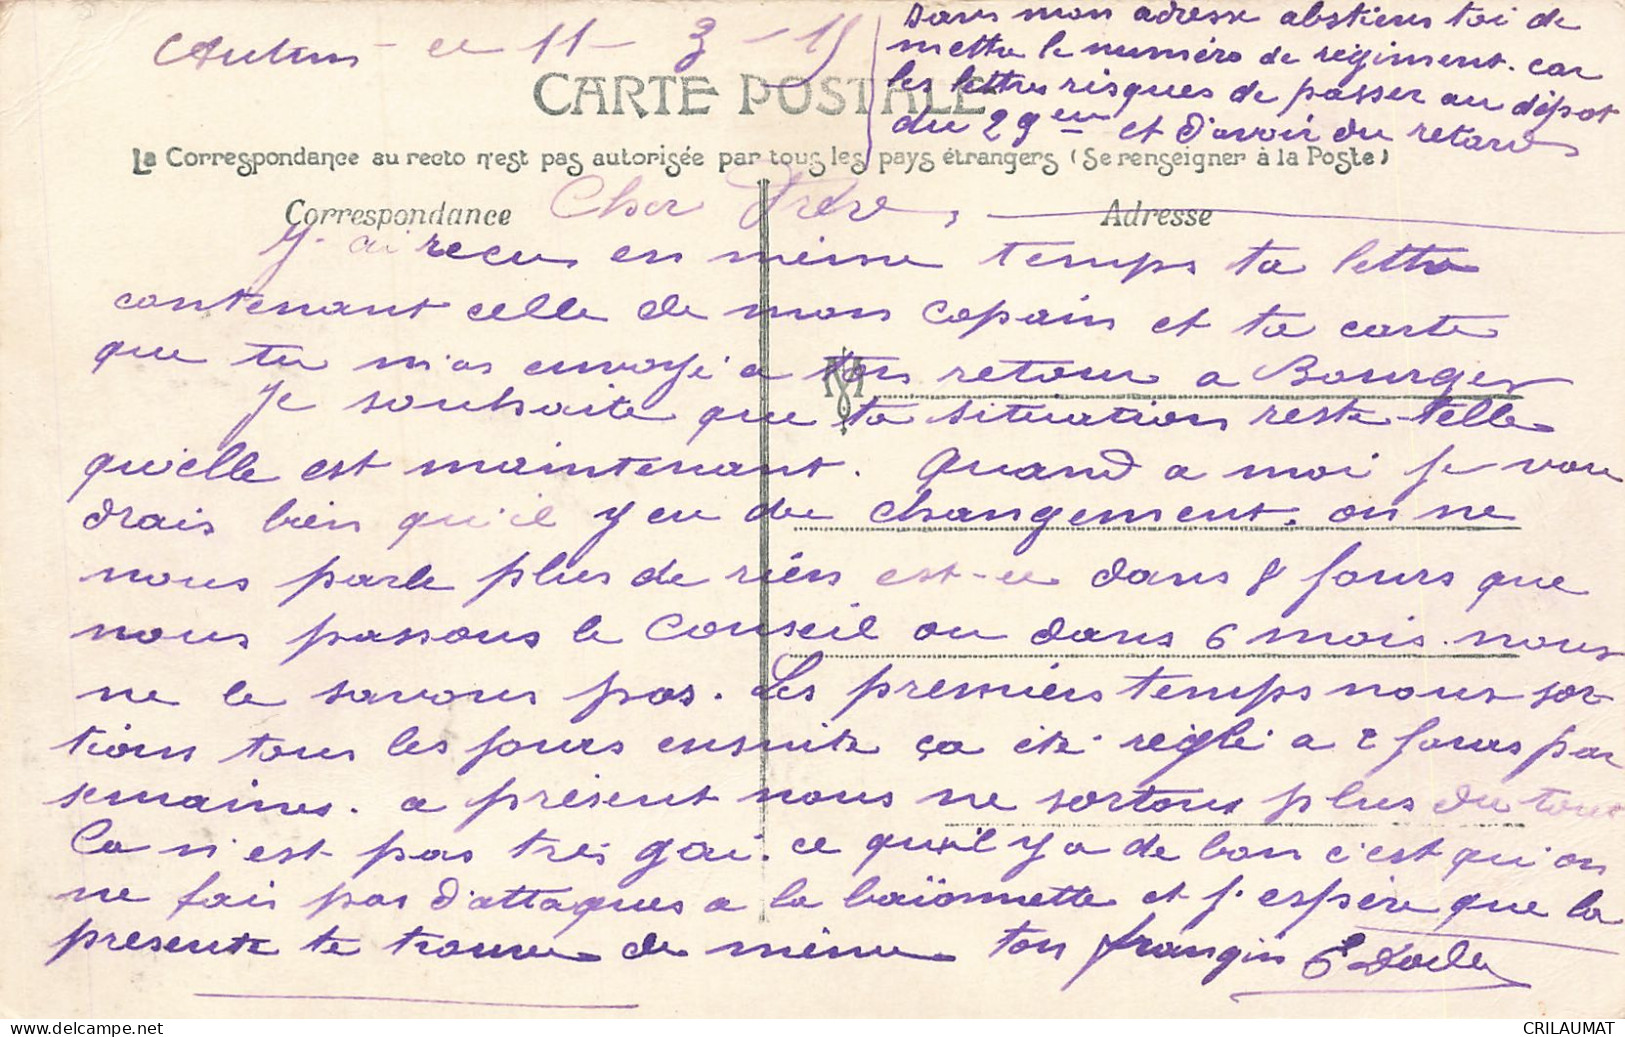 Autun – ce 11 – 3 – 15
Dans mon adresse abstiens toi de
mettre le numéro de régiment. car
les lettres risques de passer au dépot
du 29eme et d'avoir du retard
CARTE POSTALE
La Correspondance au recto n'est pas autorisée par tous les pays étrangers (Se renseigner à la Poste)
Correspondance
Adresse
Cher Frère,
J'ai recu en même temps ta lettre
contenant celle de mon copain et ta carte
que tu m'as envoyé a ton retour a Bourges
Je souhaite que ta situation reste telle
qu'elle est maintenant. Quand a moi je vou
drais bien qu'il y eu du changement. on ne
nous parle plus de rien est-ce dans 8 jours que
nous passons le Conseil ou dans 6 mois. nous
ne le savons pas. Les premiers temps nous sor-
tions tous les jours ensuite ça été réglé a 2 jours par
semaines. a présent nous ne sortons plus du tout
Ca n'est pas très gai. ce qu'il y a de bon c'est qu'on
ne fais pas d'attaques a la baïonnette et j'espère que la
présente te trouve de même ton frangin
CRILAUMAT